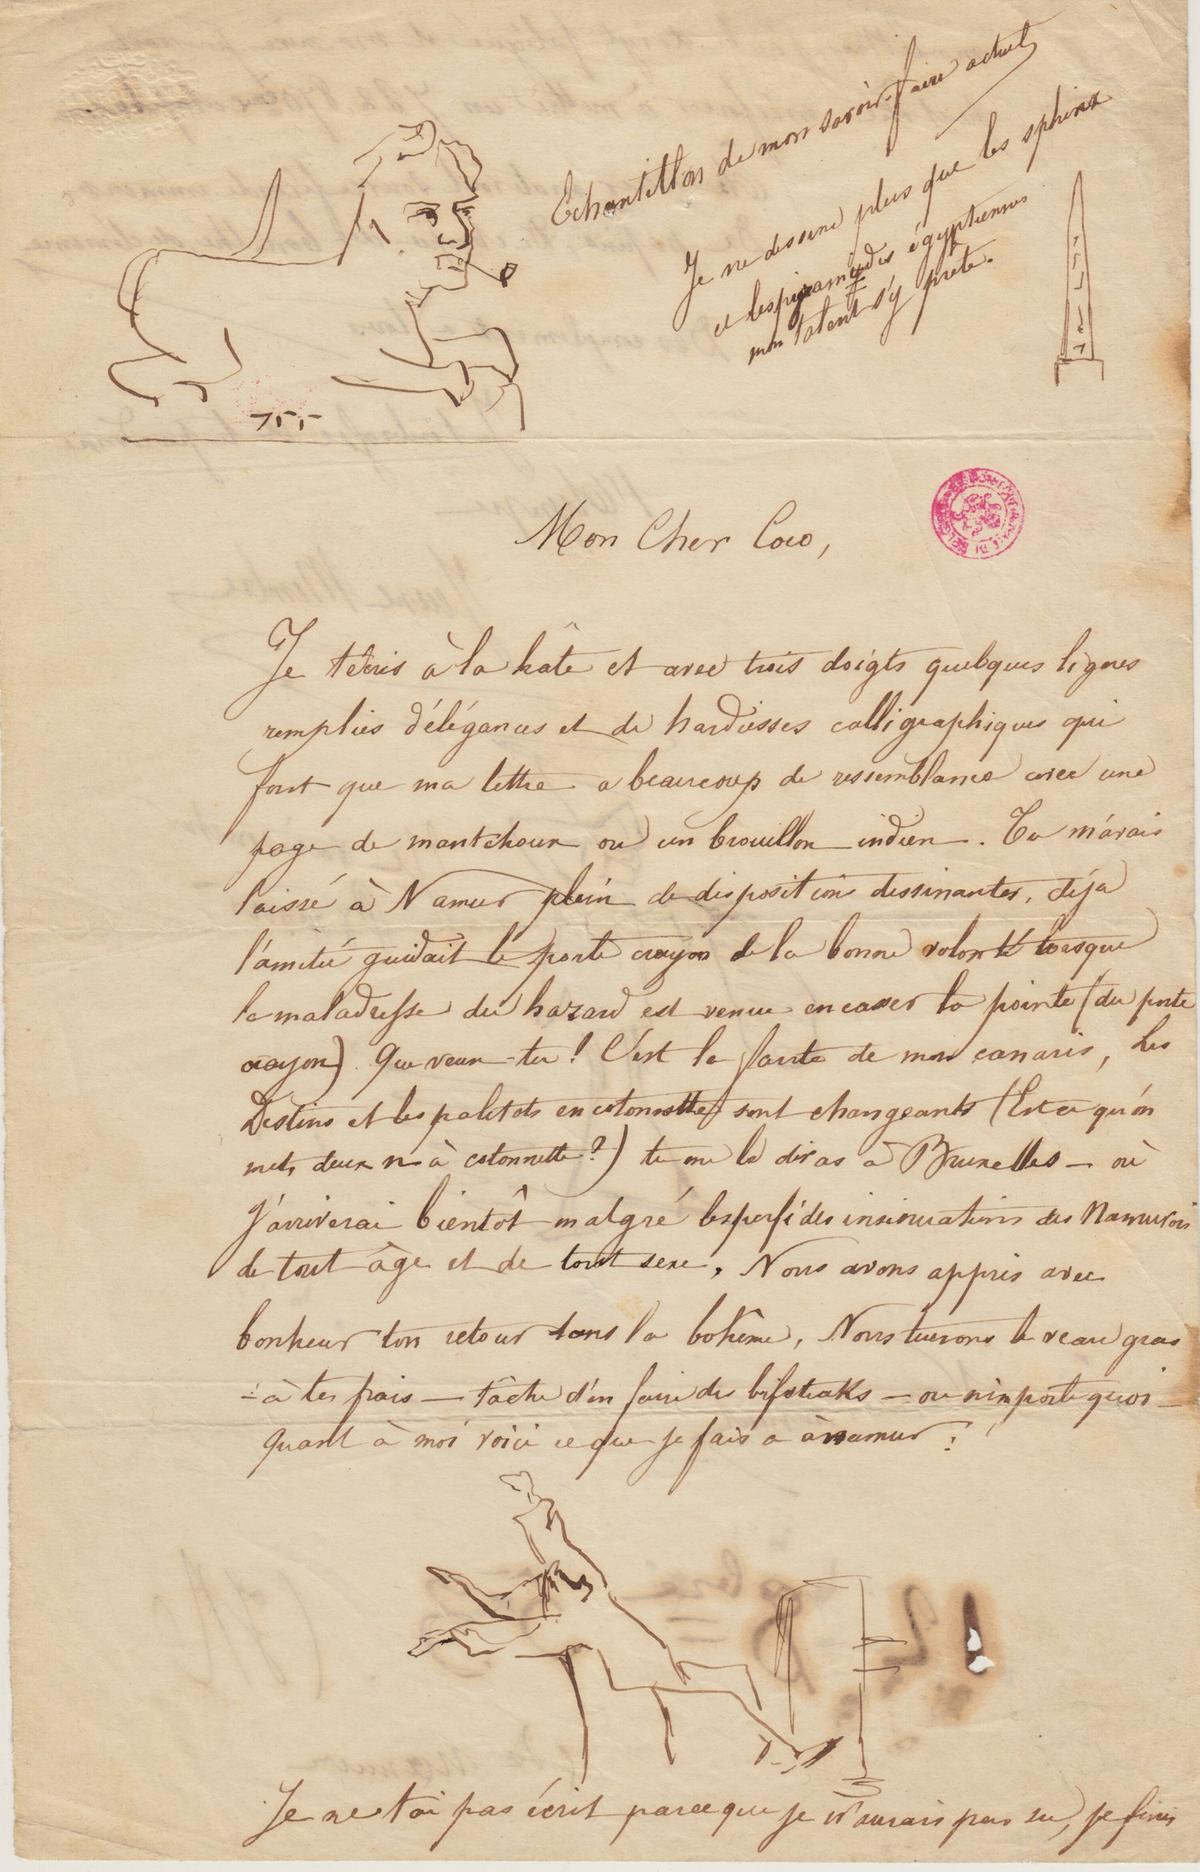 Echantillon de mon savoir-faire actuel
Je ne dessine plus que les sphinx
et les pyramides égyptiennes
mon talent s'y prête.
Mon Cher Coco,
Je t'écris à la hâte et avec trois doigts quelques lignes
remplies d'élégances et de hardiesses calligraphiques qui
font que ma lettre a beaucoup de ressemblance avec une
page de mantchoux ou un brouillon indien. Tu m'avais
laissé à Namur plein de dispositions dessinantes, déja
l'amitié guidait le porte crayon de la bonne volonté lorsque
la maladresse du hazard est venue en casser la pointe (du porte
crayon). Que veux-tu! C'est la faute de mon canaris, les
Destins et les paletots en cotonnette sont changeants (Est ce qu'on
met deux n à cotonnette?) tu me le diras à Bruxelles — où
j'arriverai bientôt malgré les perfides insinuations des Namurois
de tout âge et de tout sexe. Nous avons appris avec
bonheur ton retour dans la bohême, Nous tuerons le veau gras
- à tes frais — tâche d'en faire des bifsteaks — ou n'importe quoi -
Quant à moi voici ce que je fais a à namur :
Je ne t'ai pas écrit parceque je n'aurais pas su, je finis